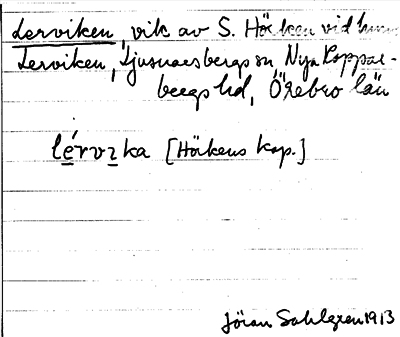 Lerviken, vik av S. Hörken vid
Lerviken, Ljusnarsbergs sn, Nya Koppar-
bergs hd, Örebro län
lérvika [Hörkens kap.]
Jöran Sahlgren 1913